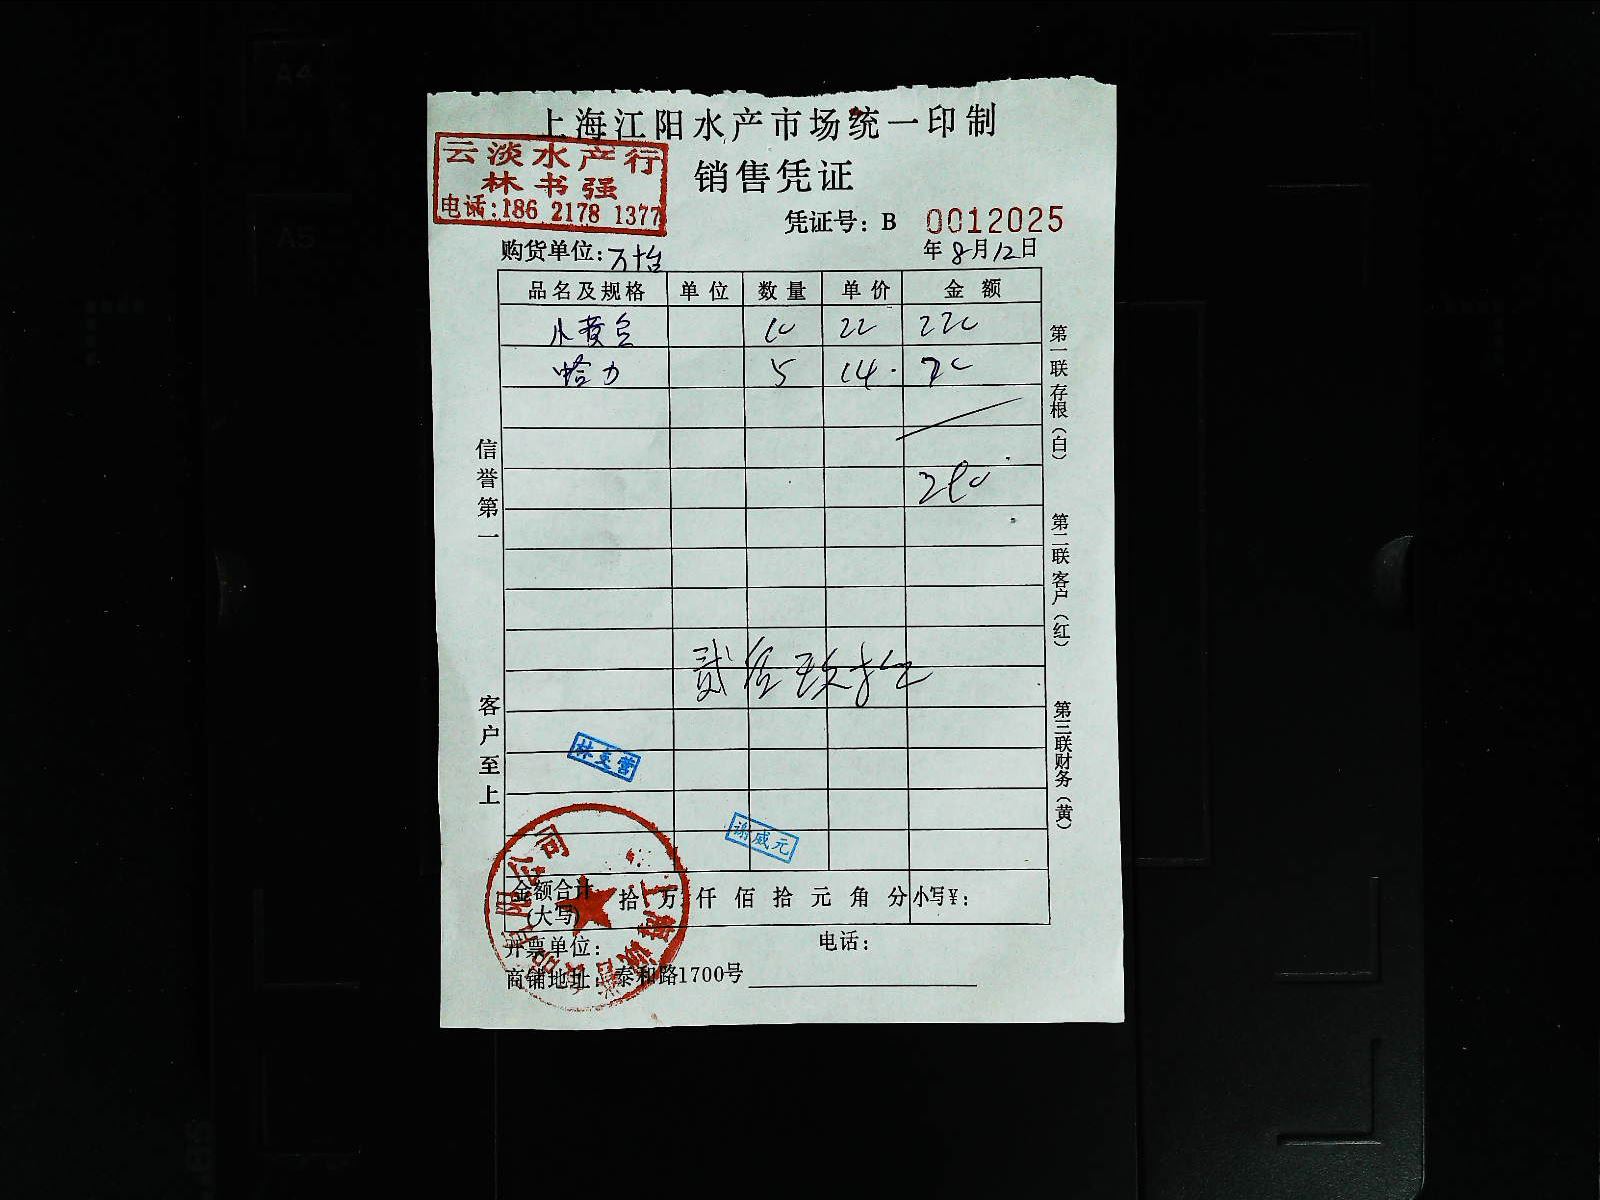 上海江阳水产市场统一印制
云淡水产行
林书强
电话:186 2178 1377
销售凭证
凭证号: B 0012025
购货单位:万怡
年8月12日
品名及规格 单位 数量 单价 金额
小黄鱼 10 22 220
蛤力 5 14. 70
290
贰佰玖拾元
信誉第一
客户至上
第一联存根(白)
第二联客户(红)
第三联财务(黄)
谢威元
金额合计(大写) 拾 万 仟 佰 拾 元 角 分 小写¥:
开票单位: 电话:
商铺地址: 泰和路1700号